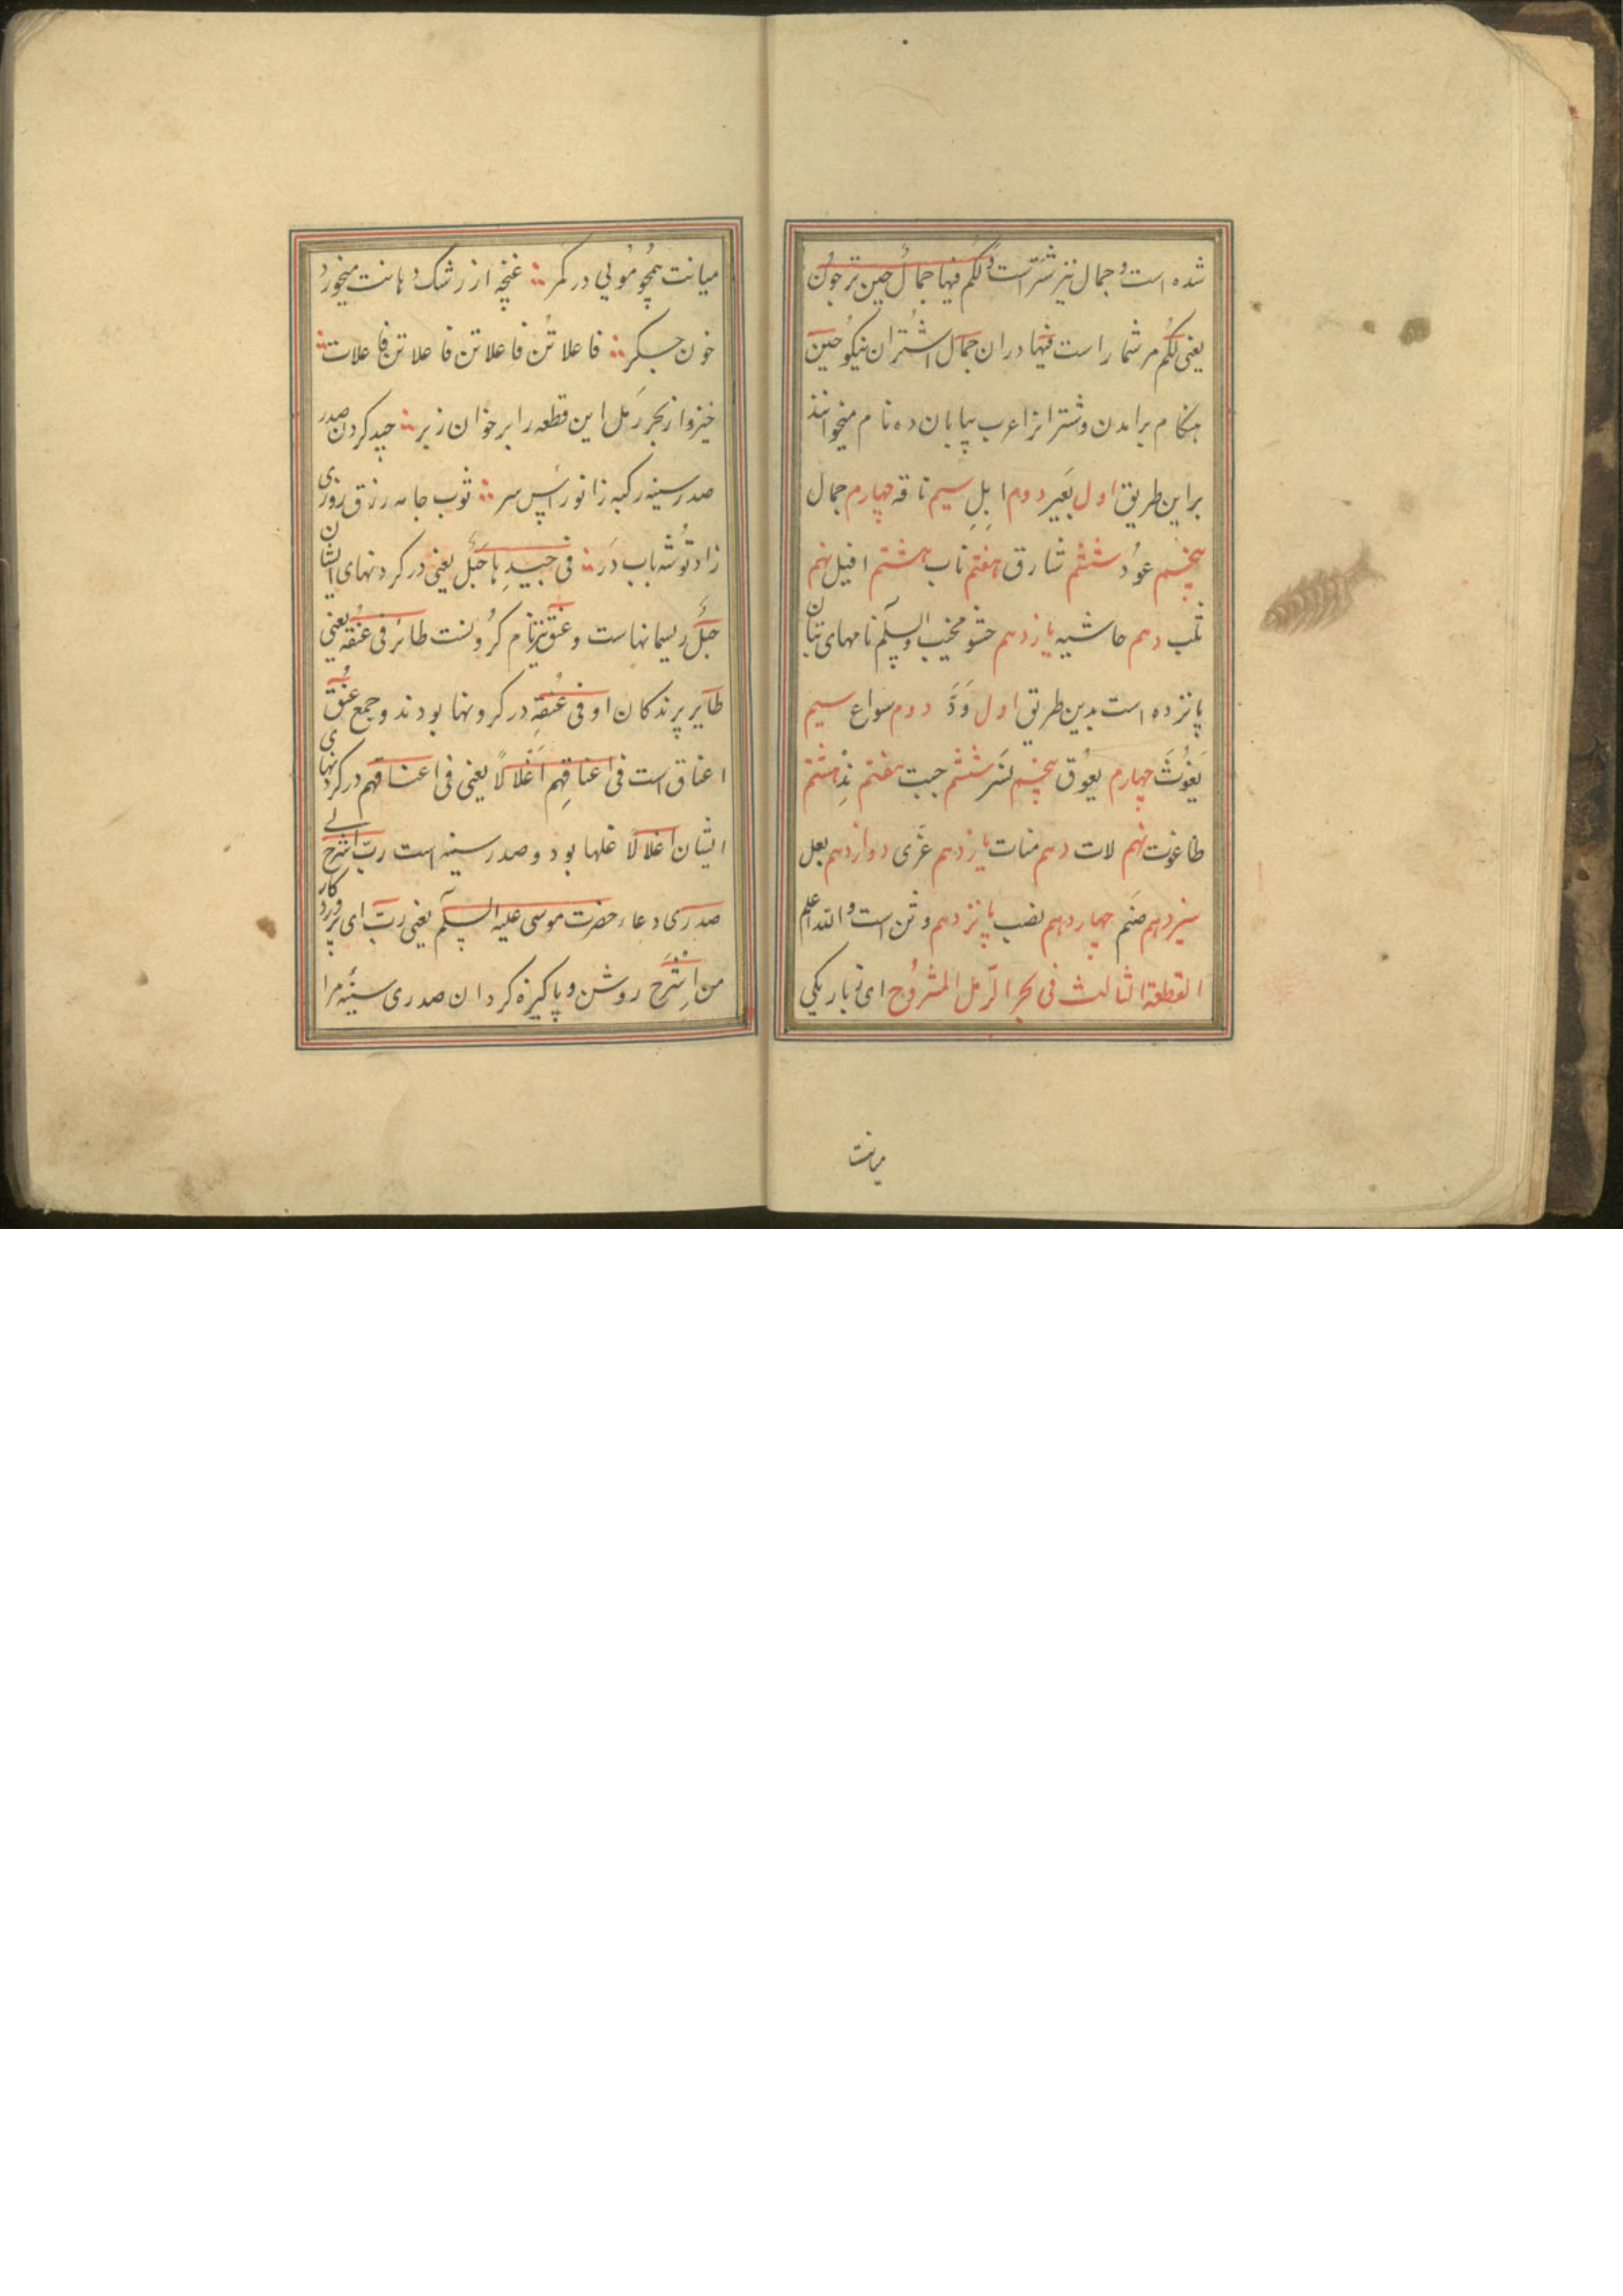 شده است و جمال نیز شتر است و لکم فیها جمال حین ترحون
یعنی لکم مر شما راست فیها دران جمال اشتران نیکو حین
هنکام برامدن و شترانرا عرب بیابان ده نام میخوانند
براین طریق اول بعیر دوم ابل سیم ناقه چهارم جمال
پنجم عود ششم شارق هفتم ناب هشتم افیل نهم
ثلب دهم حاشیه یازدهم حشو والسلم نامهای بتان
پانزده است بدین طریق اول ود دوم سواع سیم
یغوث چهارم یعوق پنجم نسر ششم جبت هفتم ند هشتم
طاغوت نهم لات دهم منات یازدهم عزی دوازدهم بعل
سیزدهم صنم چهاردهم نصب پانزدهم وثن است والله اعلم
القطعة الثالث فی بحر الرمل المشروح ای تو باریکی
میانت
میانت همچو مویی در کمر غنچه از رشک دهانت میخورد
خون جکر فاعلاتن فاعلاتن فاعلاتن فاعلات
خیز و از بحر رمل این قطعه را بر خوان زبر جید کردن صدر
صدر سینه رکبه زانو راس سر ثوب جامه رزق روزی
زاد توشه باب در فی جیدها حبل یعنی در کردنهای ایشان
حبل ریسمانهاست و عنق نیز نام کردنست طائر فی عنقه یعنی
طایر پرندکان او فی عنقه در کردنها بودند و جمع عنق
اعناق است فی اعناقهم اغلالا یعنی فی اعناقهم در کردنهای
ایشان اغلالا غلها بود و صدر سینه است رب اشرح لی
صدری دعاء حضرت موسی علیه السلم یعنی رب ای پروردکار
من اشرح روشن و پاکیزه کردان صدری سینه مرا